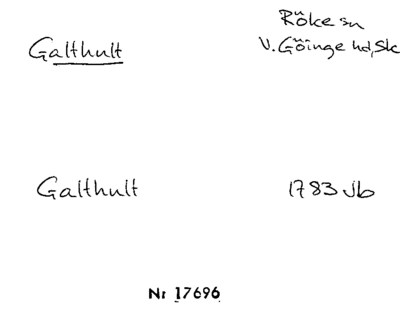 Galthult
Röke sn
V. Göinge hd, Sk
Galthult
1783 Jb
Nr 17696